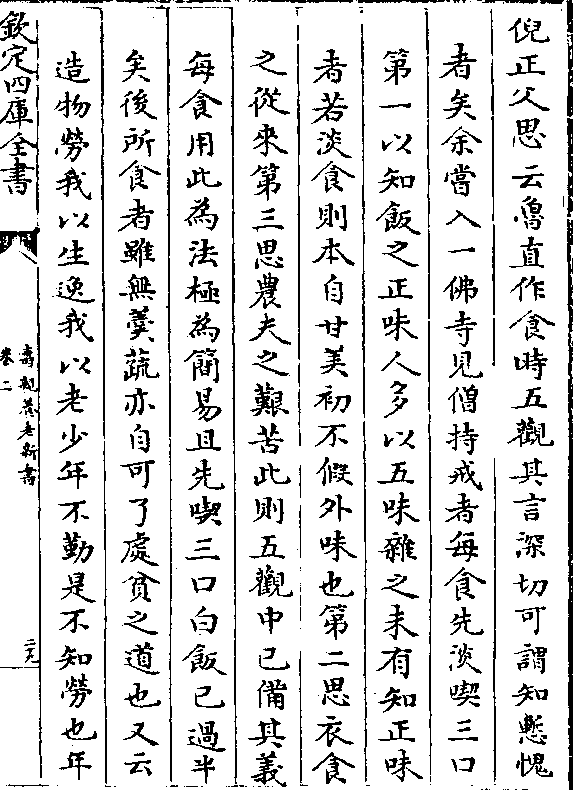 倪正父思云魯直作食時五觀其言深切可謂知慙愧
者矣余嘗入一佛寺見僧持戒者每食先淡喫三口
第一以知飯之正味人多以五味雜之未有知正味
者若淡食則本自甘美初不假外味也第二思衣食
之從來第三思農夫之艱苦此則五觀中已備其義
每食用此為法極為簡易且先喫三口白飯已過半
矣後所食者雖無羹蔬亦自可了處貧之道也又云
造物勞我以生逸我以老少年不勤是不知勞也年
欽定四庫全書
壽親養老新書
卷二
二九